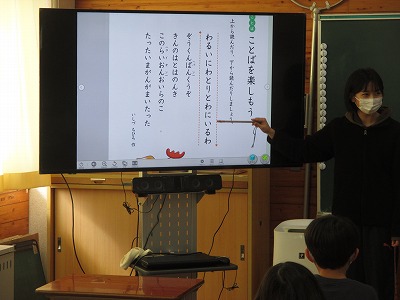 ことばを楽しもう
上から読んだり、下から読んだりしましょう。
わるいにわとりとわにいるわ
ぞうくんぱんくうぞ
きんのはとはのんき
このらいおんおいらのこ
たったいまがんがまいたった